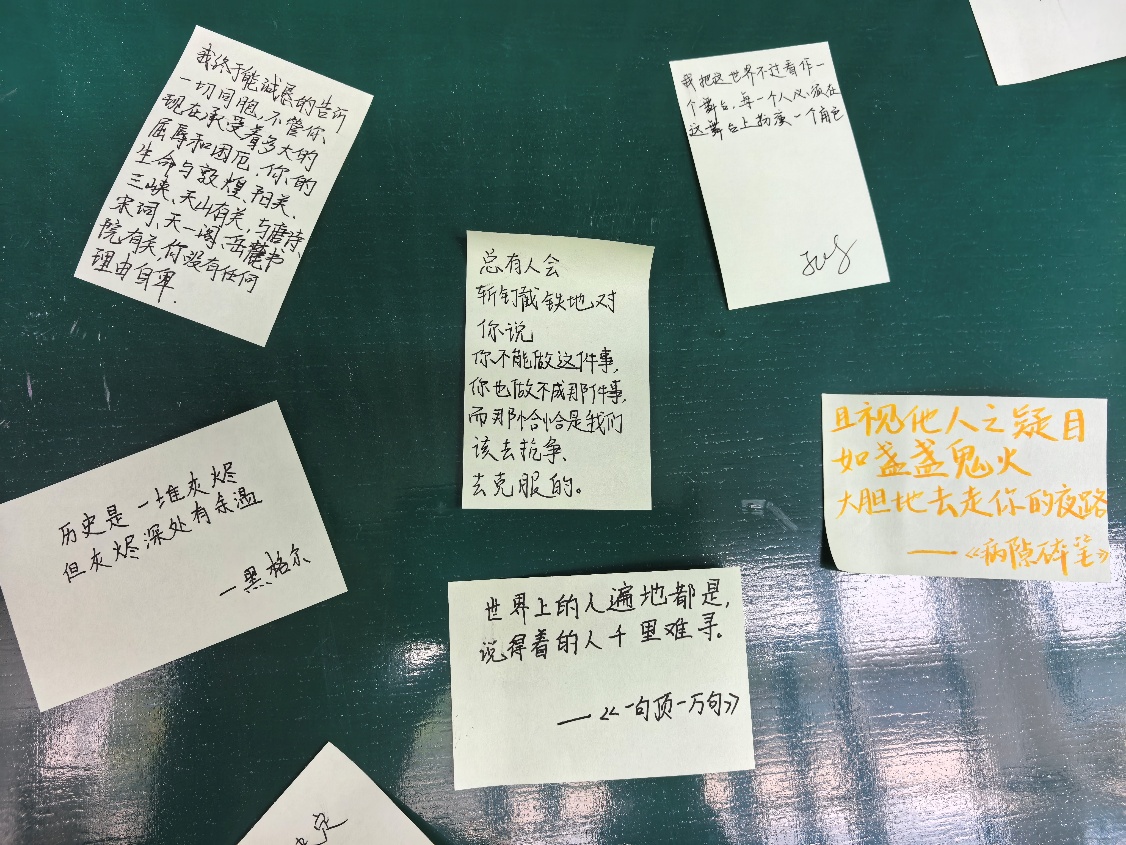 我终于能诚恳的告诉
一切同胞,不管你
现在承受着多大的
屈辱和困厄.你的
生命与敦煌、阳关、
三峡、天山有关,与唐诗、
宋词、天一阁、岳麓书
院有关你没有任何
理由自卑.
我把这世界不过看作一
个舞台,每一个人必须在
这舞台上扮演一个角色
总有人会
斩钉截铁地对
你说
你不能做这件事,
你也做不成那件事,
而那恰恰是我们
该去抗争、
去克服的。
且视他人之疑目
如盏盏鬼火
大胆地去走你的夜路
——《病隙碎笔》
历史是一堆灰烬
但灰烬深处有余温
—黑格尔
世界上的人遍地都是,
说得着的人千里难寻。
——《一句顶一万句》